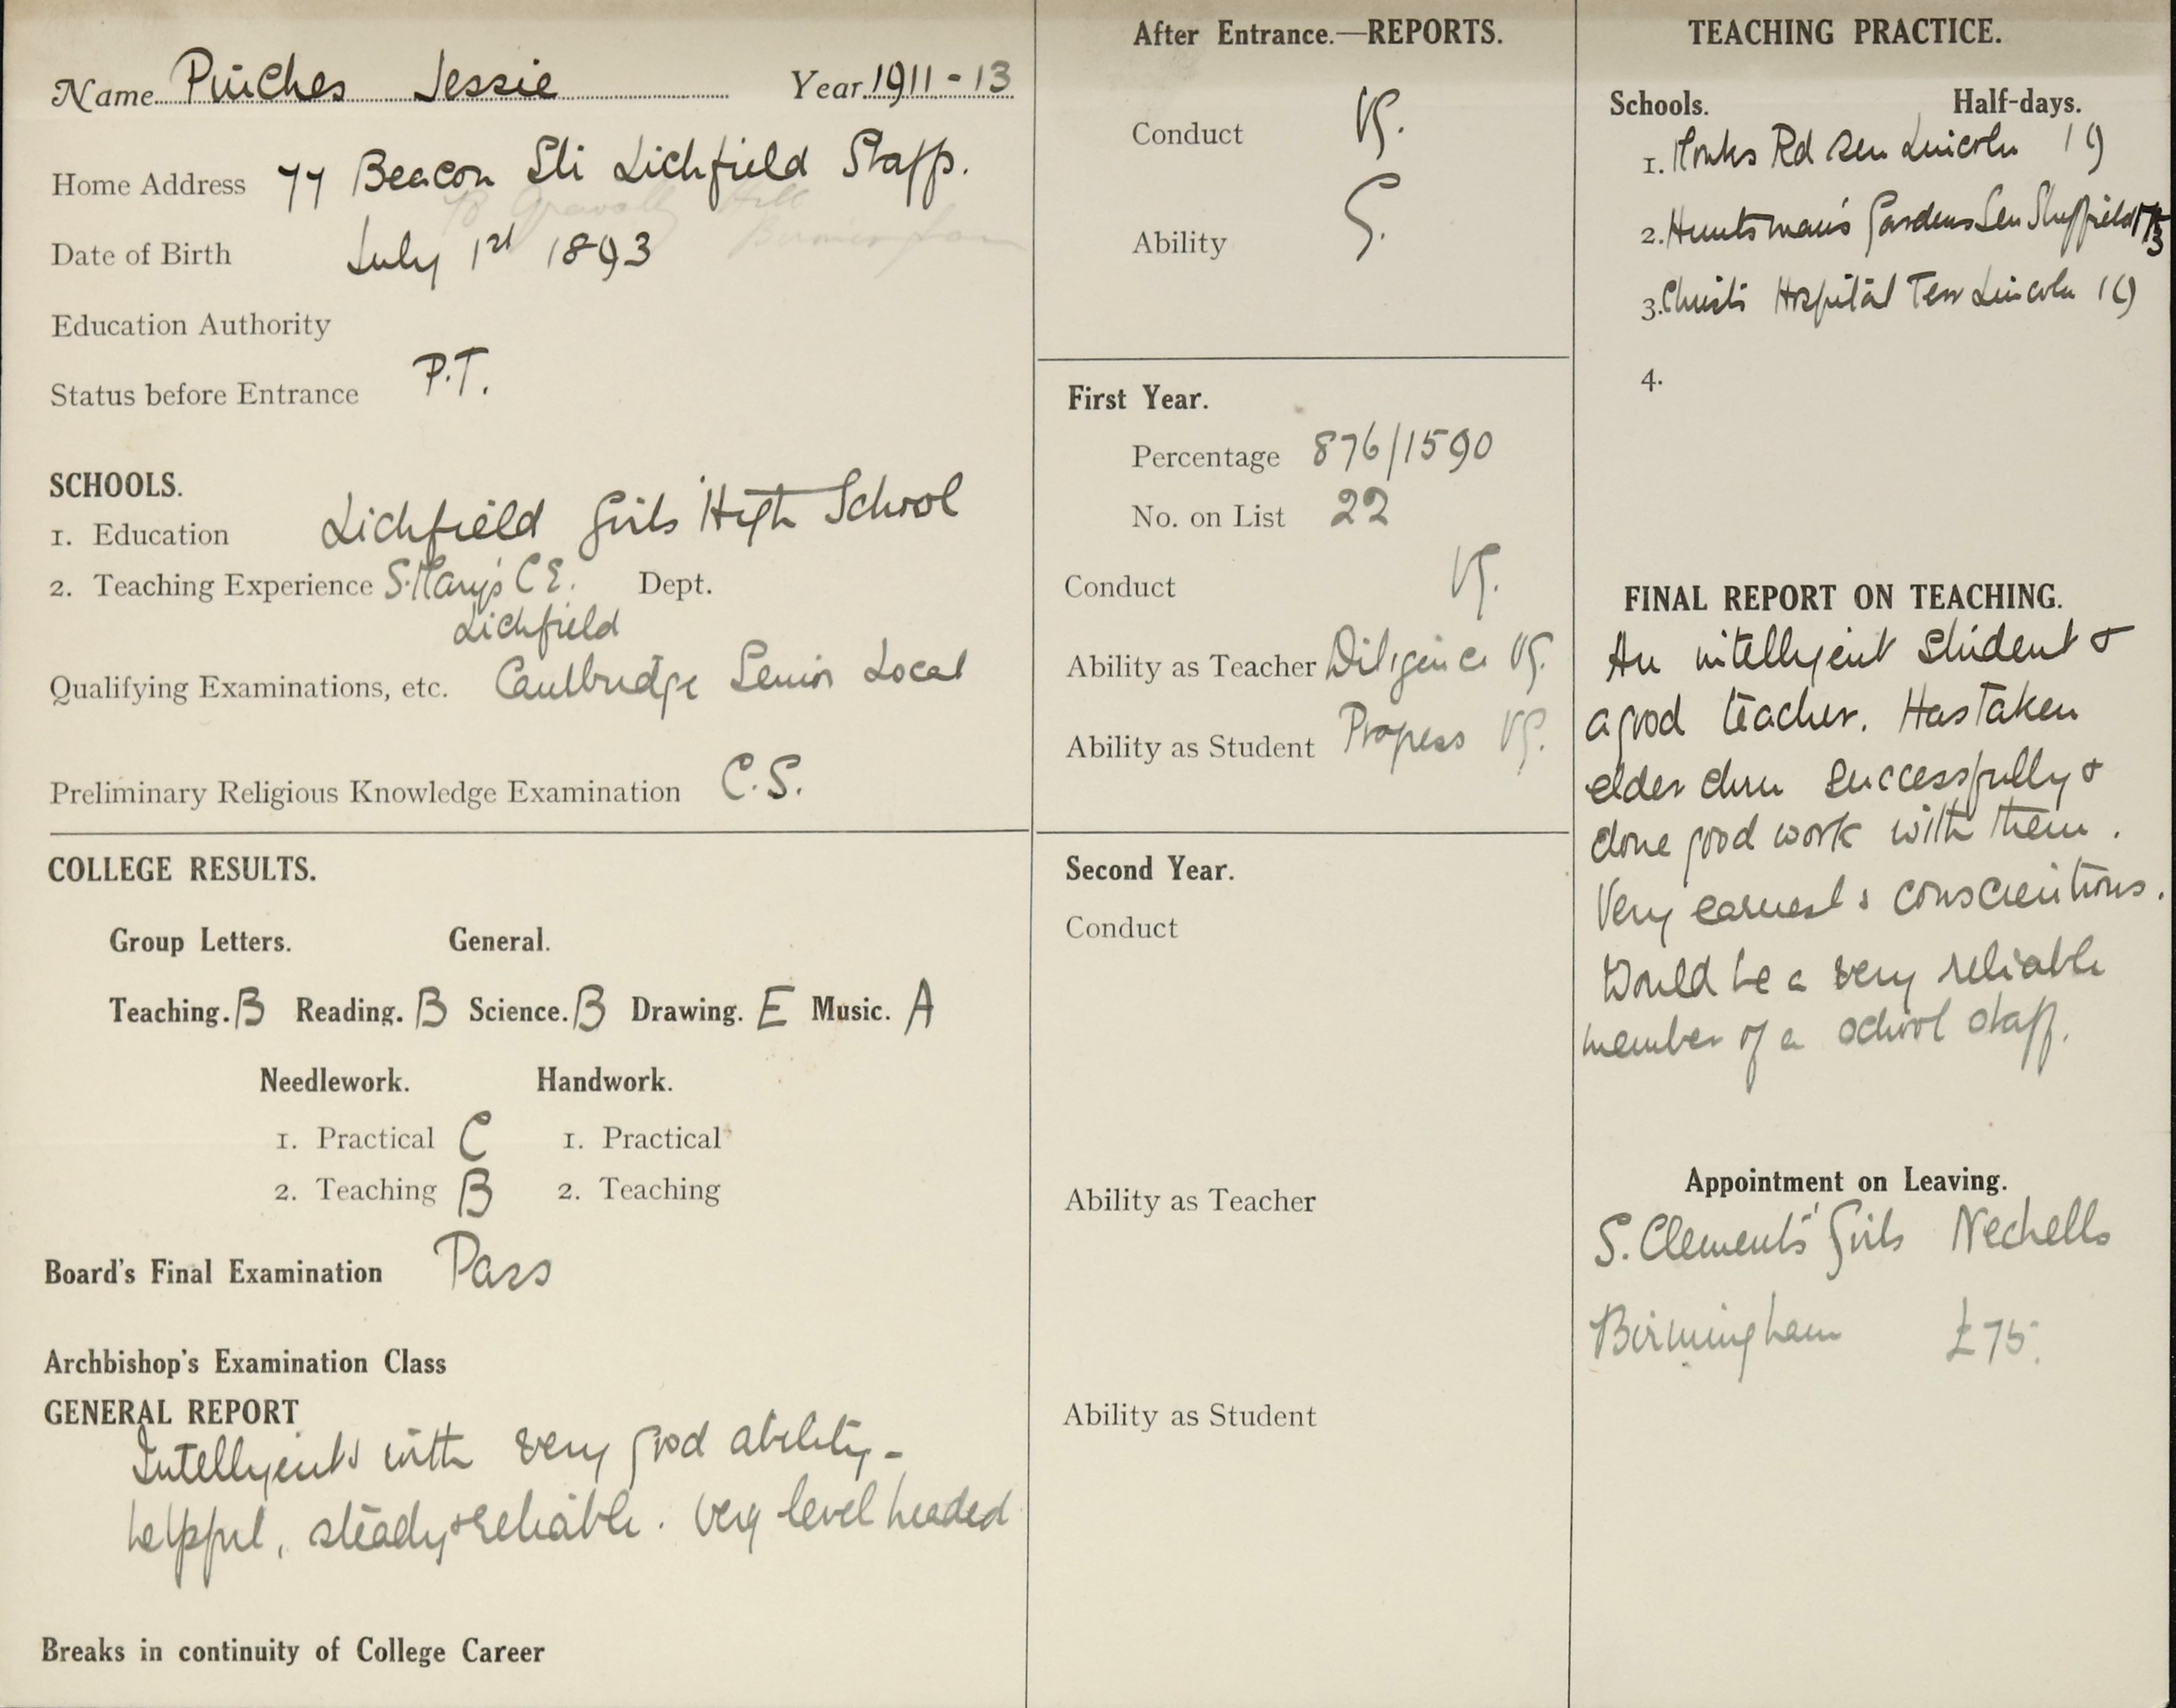 Name Pinches Jessie Year 1911-13
Home Address 77 Beacon St. Lichfield Staffs.
Gravelly Hill
Birmingham
Date of Birth July 1st 1893
Education Authority
Status before Entrance P.T.
SCHOOLS.
1. Education Lichfield Girls' High School
2. Teaching Experience S. Mary's C.E. Dept.
Lichfield
Qualifying Examinations, etc. Cambridge Senior Local
Preliminary Religious Knowledge Examination C.S.
COLLEGE RESULTS.
Group Letters. General.
Teaching. B Reading. B Science. B Drawing. E Music. A
Needlework. Handwork.
1. Practical C 1. Practical
2. Teaching B 2. Teaching
Board's Final Examination Pass
Archbishop's Examination Class
GENERAL REPORT
Intelligent with very good ability -
helpful, steady & reliable. Very level headed
Breaks in continuity of College Career
After Entrance.—REPORTS.
Conduct VG.
Ability G.
First Year.
Percentage 876/1590
No. on List 22
Conduct VG.
Ability as Teacher Diligence VG.
Ability as Student Progress VG.
Second Year.
Conduct
Ability as Teacher
Ability as Student
TEACHING PRACTICE.
Schools. Half-days.
1. Monks Rd Sen Lincoln 19
2. Huntsman's Gardens Sen Sheffield
3. Christ's Hospital Terr Lincoln 19
4.
FINAL REPORT ON TEACHING.
An intelligent student &
a good teacher. Has taken
elder chn successfully &
done good work with them.
Very earnest & conscientious.
Would be a very reliable
member of a school staff.
Appointment on Leaving.
S. Clement's Girls Nechells
Birmingham £75.